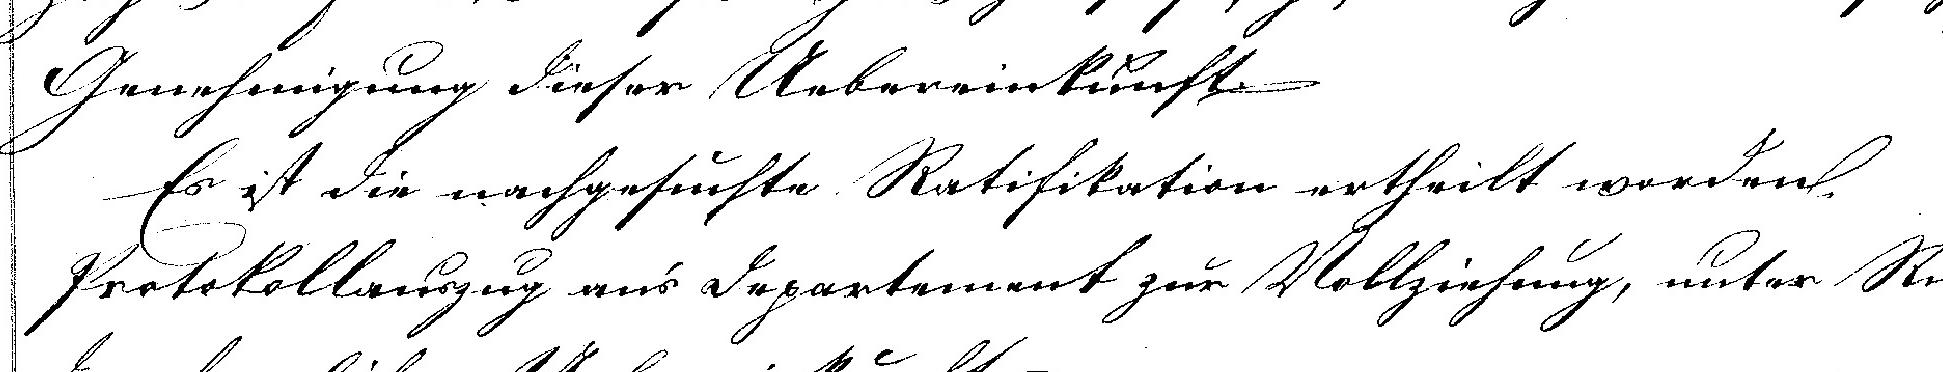 Genehmigung dieser Uebereinkunft.
Es ist die nachgesuchte Ratifikation ertheilt worden.
Protokollauszug an's Departement zur Vollziehung, unter